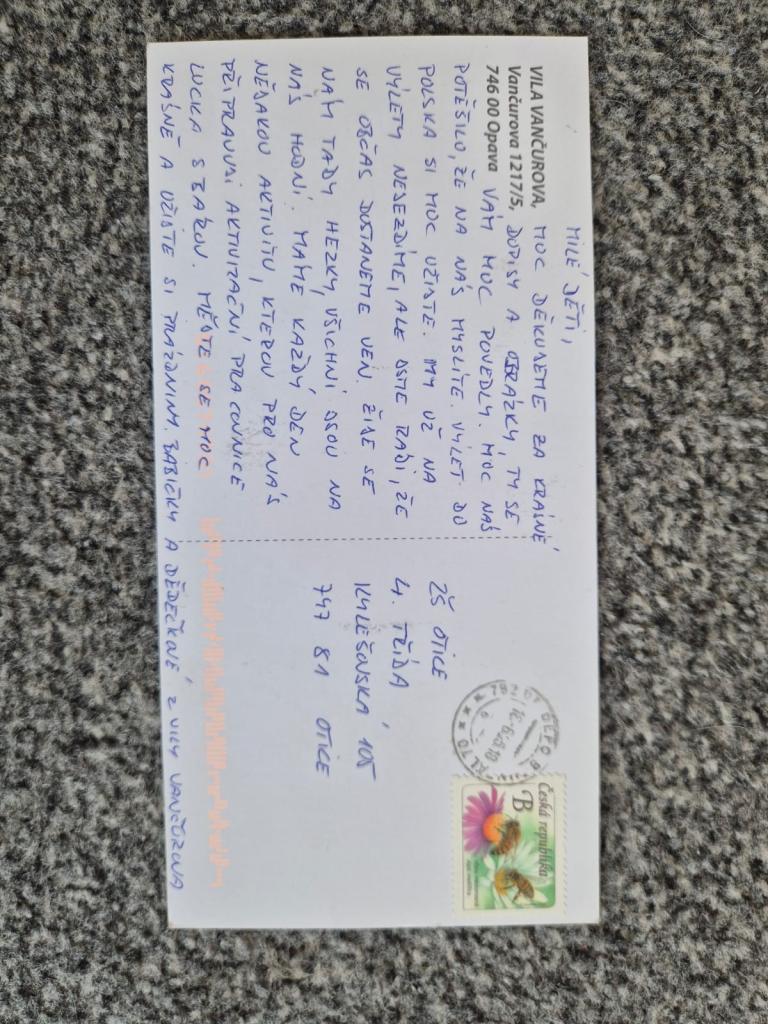 VILA VANČUROVA,
Vančurova 1217/5,
746 00 Opava
MILÉ DĚTI,
MOC DĚKUJEME ZA KRÁSNÉ
DOPISY A OBRÁZKY, TY SE
VÁM MOC POVEDLY. MOC NÁS
POTĚŠILO, ŽE NA NÁS MYSLÍTE. VÝLET DO
POLSKA SI MOC UŽIJTE. MY UŽ NA
VÝLETY NEJEZDÍME, ALE JSME RÁDI, ŽE
SE OBČAS DOSTANEME VEN. ŽIJE SE
NÁM TADY HEZKY, VŠICHNI JSOU NA
NÁS HODNÍ. MÁME KAŽDÝ DEN
NĚJAKOU AKTIVITU, KTEROU PRO NÁS
PŘIPRAVUJÍ AKTIVIZAČNÍ PRACOVNICE
LUCKA S BÁROU. MĚJTE SE MOC
KRÁSNĚ A UŽIJTE SI PRÁZDNINY. BABIČKY A DĚDEČKOVÉ Z VILY VANČUROVA
ZŠ OTICE
4. TŘÍDA
KYLEŠOVSKÁ 105
747 81 OTICE
Česká republika
B